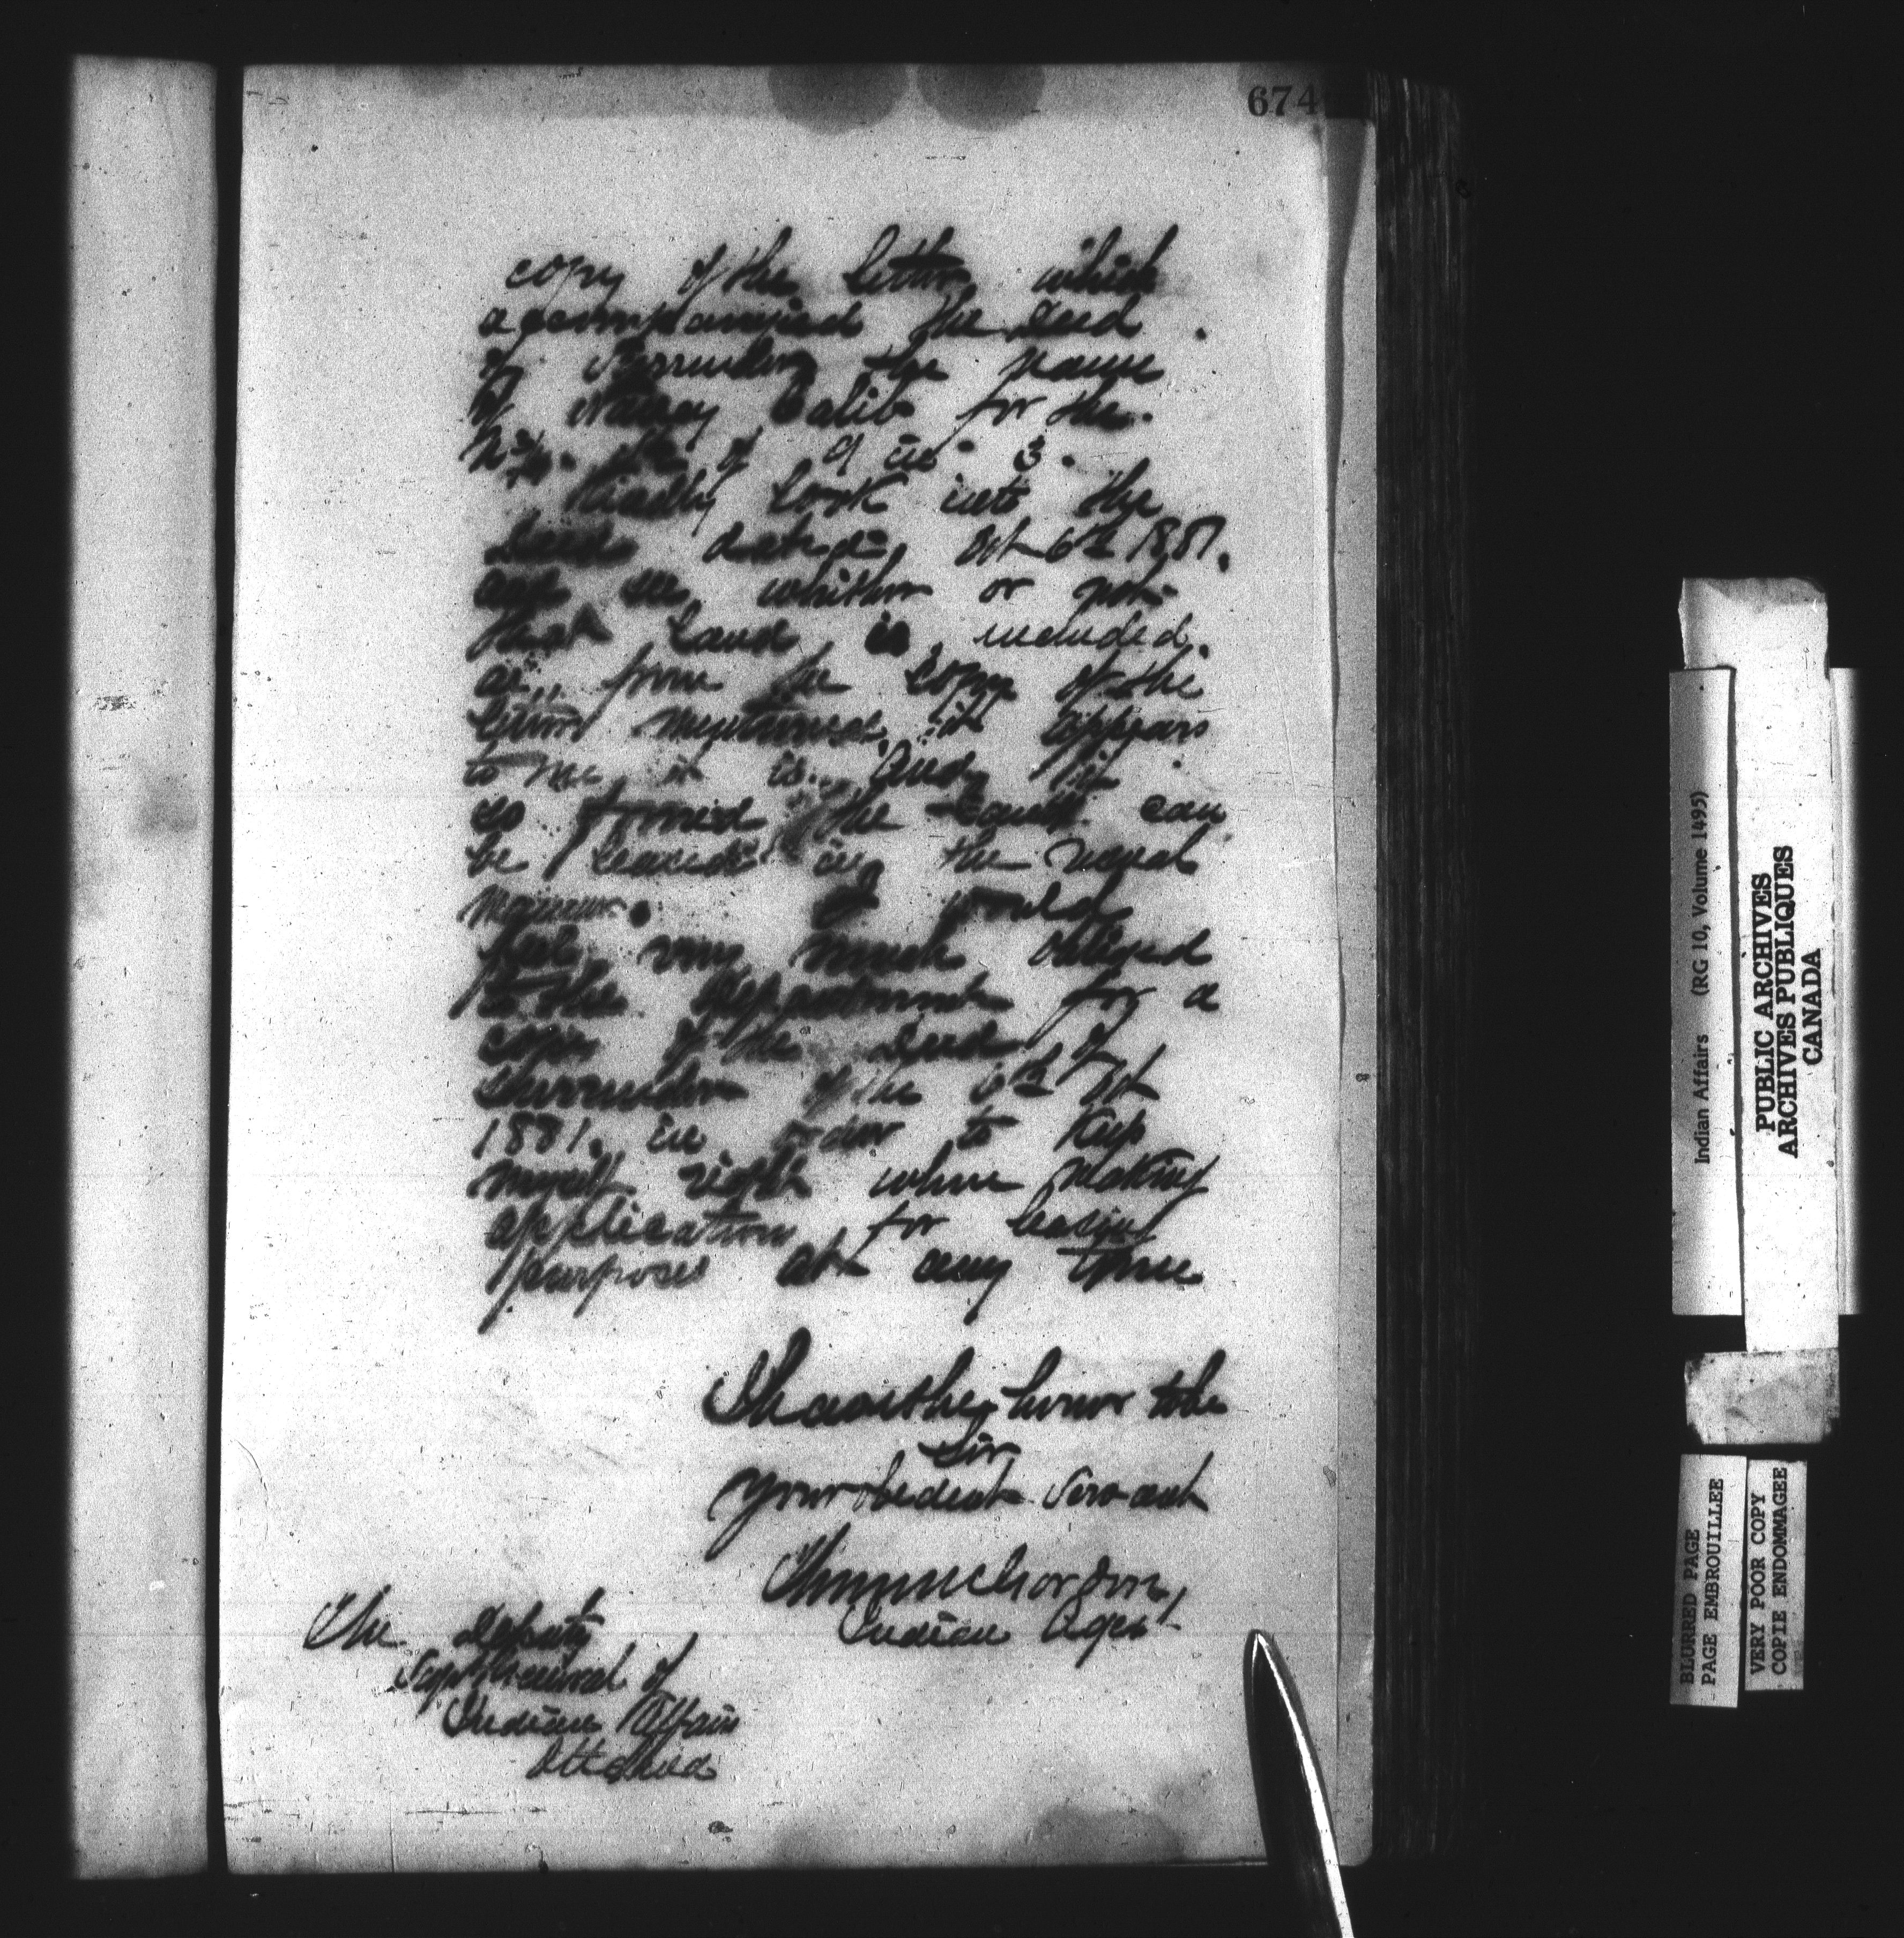 674
copy of the letter which
accompanied the Deed
of Surrender the name
of Nancy Calib for the
N 1/2 of 9 in 3.
Kindly look into the
Deed dated Oct 6th 1881.
and see whether or not
that Land is included.
as, from the Copy of the
letter mentioned it appears
to me it is. And, if
so found the Land can
be leased in the usual
manner. I would
feel very much obliged
to the Department for a
copy of the Deed of
Surrender of the 6th Oct
1881. in order to keep
myself right when making
application for leasing
purposes at any time
I have the honor to be
Sir
Your obedient Servant
Indian Agent
The Deputy
Supt General of
Indian Affairs
Ottawa
Indian Affairs (RG 10, Volume 1495)
PUBLIC ARCHIVES
ARCHIVES PUBLIQUES
CANADA
BLURRED PAGE
PAGE EMBROUILLEE
VERY POOR COPY
COPIE ENDOMMAGEE